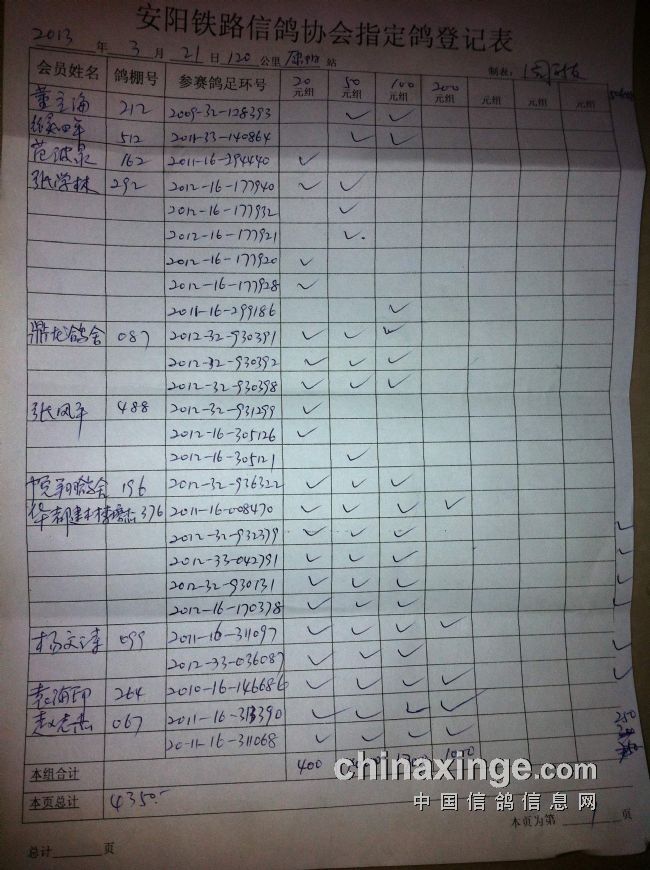 安阳铁路信鸽协会指定鸽登记表
2013 年 3 月 21 日 120 公里 站 制表:
会员姓名 鸽棚号 参赛鸽足环号 20元组 50元组 100元组 200元组 元组 元组 元组
212 2009-32-128393 ✓ ✓
512 2011-33-140864 ✓ ✓
162 2011-16-394440 ✓
张学林 292 2012-16-177940 ✓ ✓
2012-16-177932 ✓
2012-16-177921 ✓
2012-16-177920 ✓
2012-16-177928 ✓
2011-16-299186 ✓
鼎龙鸽舍 087 2012-32-930391 ✓ ✓ ✓
2012-32-930392 ✓ ✓ ✓
2012-32-930398 ✓ ✓ ✓
张凤平 488 2012-32-931299 ✓
2012-16-305126 ✓
2012-16-305121 ✓
196 2012-32-936322 ✓ ✓ ✓
376 2011-16-008470 ✓ ✓ ✓ ✓
2012-32-932379 ✓ ✓ ✓ ✓
2012-33-042791 ✓ ✓ ✓ ✓
2012-32-930131 ✓ ✓ ✓ ✓
2012-16-170378 ✓ ✓ ✓ ✓
杨文涛 099 2011-16-311097 ✓ ✓ ✓ ✓
2012-33-036087 ✓ ✓ ✓ ✓
袁海印 264 2010-16-146686 ✓ ✓ ✓ ✓ ✓
067 2011-16-313390 ✓ ✓ ✓ ✓ 250
2011-16-311068 ✓ ✓ ✓ ✓
本组合计 400
本页总计 4350.-
chinaxinge.com
中国信鸽信息网
本页为第 1 页
总计 页